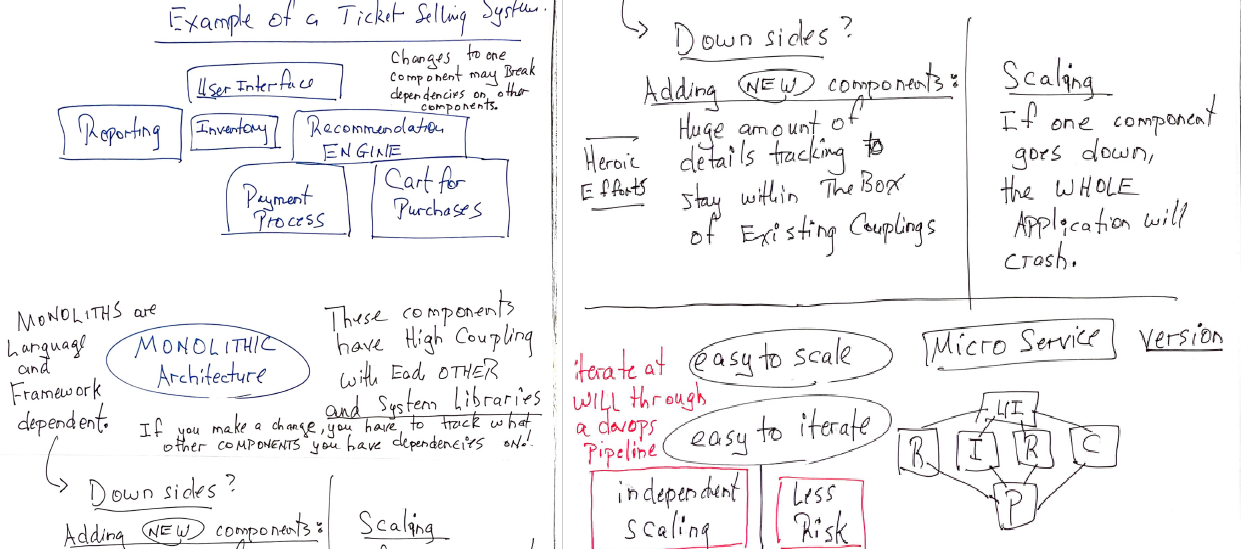 Example of a Ticket Selling System.
Changes to one
component may Break
dependencies on other
components.
User Interface
Reporting
Inventory
Recommendation
ENGINE
Payment
Process
Cart for
Purchases
MONOLITHS are
Language
and
Framework
dependent.
MONOLITHIC
Architecture
These components
have High Coupling
with Each OTHER
and System Libraries
If you make a change, you have to track what
other COMPONENTS you have dependencies ON!
Down sides?
Adding NEW components:
Scaling
Down sides?
Adding NEW components:
Heroic
Efforts
Huge amount of
details tracking to
stay within The Box
of Existing Couplings
Scaling
If one component
goes down,
the WHOLE
Application will
crash.
iterate at
WILL through
a devops
Pipeline
easy to scale
easy to iterate
independent
scaling
Less
Risk
Micro Service version
UI
R I R C
P